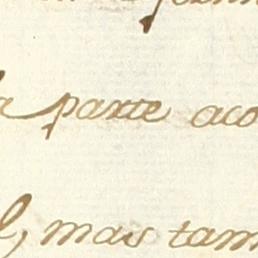 a parte aco
l, mas tam